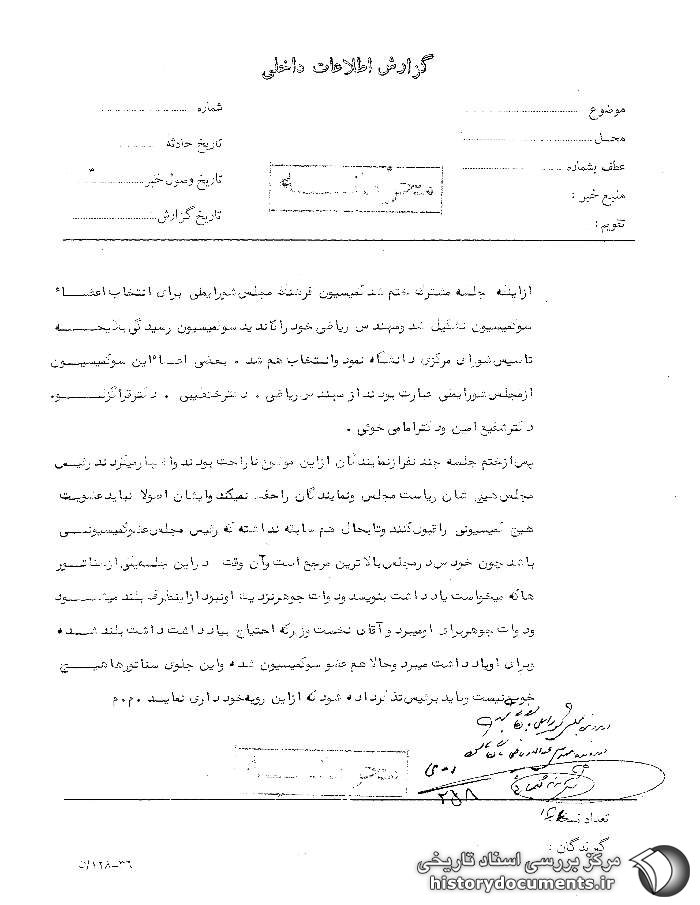 گزارش اطلاعات داخلی
موضوع
شماره
محل
تاریخ حادثه
عطف بشماره
تاریخ وصول خبر
منبع خبر :
تاریخ گزارش
تقویم :
ازاینکه جلسه مشترک ختم شد کمیسیون فرهنگ مجلس شورایملی برای انتخاب اعضاء
سوکمیسیون تشکیل شد ومهندس ریاضی خود را کاندید سوکمیسیون رسیدگی بلایحه
تاسیس شورای مرکزی دانشگاه نمود وانتخاب هم شد . بعضی اعضاء این سوکمیسیون
ازمجلس شورایملی عبارت بودند از مهندس ریاضی ، دکترخطیبی ، دکترقراگزلو
دکترشفیع امین ودکترامامی خوئی .
پس ازختم جلسه چند نفرازنمایندگان ازاین موضوع ناراحت بودند واظهارمیکردند رئیس
مجلس شان ریاست مجلس ونمایندگان راحفظ نمیکند وایشان اصولا نباید عضویت
هیچ کمیسیونی راقبول کنند وتابحال هم سابقه نداشته که رئیس مجلس عضوکمیسیونی
باشد چون خودش درمجلس بالاترین مرجع است وآن وقت دراین جلسه یکی ازسناتور
هاکه میخواست یادداشت بنویسد ودوات جوهرنزدیک اونبود ازاینطرف بلند میشود
ودوات جوهربرای اومیبرد وآقای نخست وزیرکه احتیاج بیادداشت داشت بلند شده
وبرای اویادداشت میبرد وحالا هم عضو سوکمیسیون شده واین جلوی سناتورها هیچ
خوب نیست وباید برئیس تذکرداده شود که ازاین رویه خودداری نمایند .م.م
۲۵۸
تعداد نسخه
گیرندگان :
۳۶-۱۲۸/ن
مرکز بررسی اسناد تاریخی
historydocuments.ir